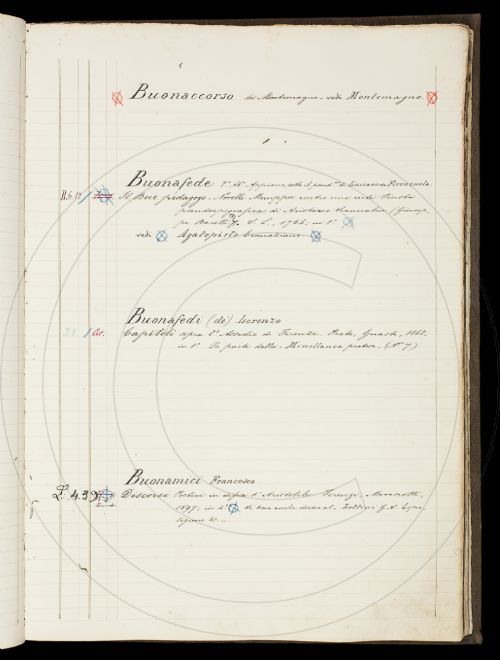 Buonaccorso da Montemagno - vedi Montemagno.
Buonafede P. Ab. Appiano, sotto il pseud. di Luciano da Firenzuola.
R.6.12 Il Bue pedagogo. Novelle Menippee contro una certa Frusta
pseudoepigrafa di Aristarco Scannabue (Giusep-
pe Baretti). S. L., 1764; in 8°
vedi Agatopisto Cromaziano
Buonafedi (de') Lorenzo
1 Capitoli sopra l'Assedio di Firenze. Prato, Guasti, 1862.
in 8° Fa parte della Miscellanea pratese. (N° 7)
Buonamici Francesco
439 Discorsi Poetici in difesa d'Aristotile. Firenze, Marescotti,
1597; in 4°